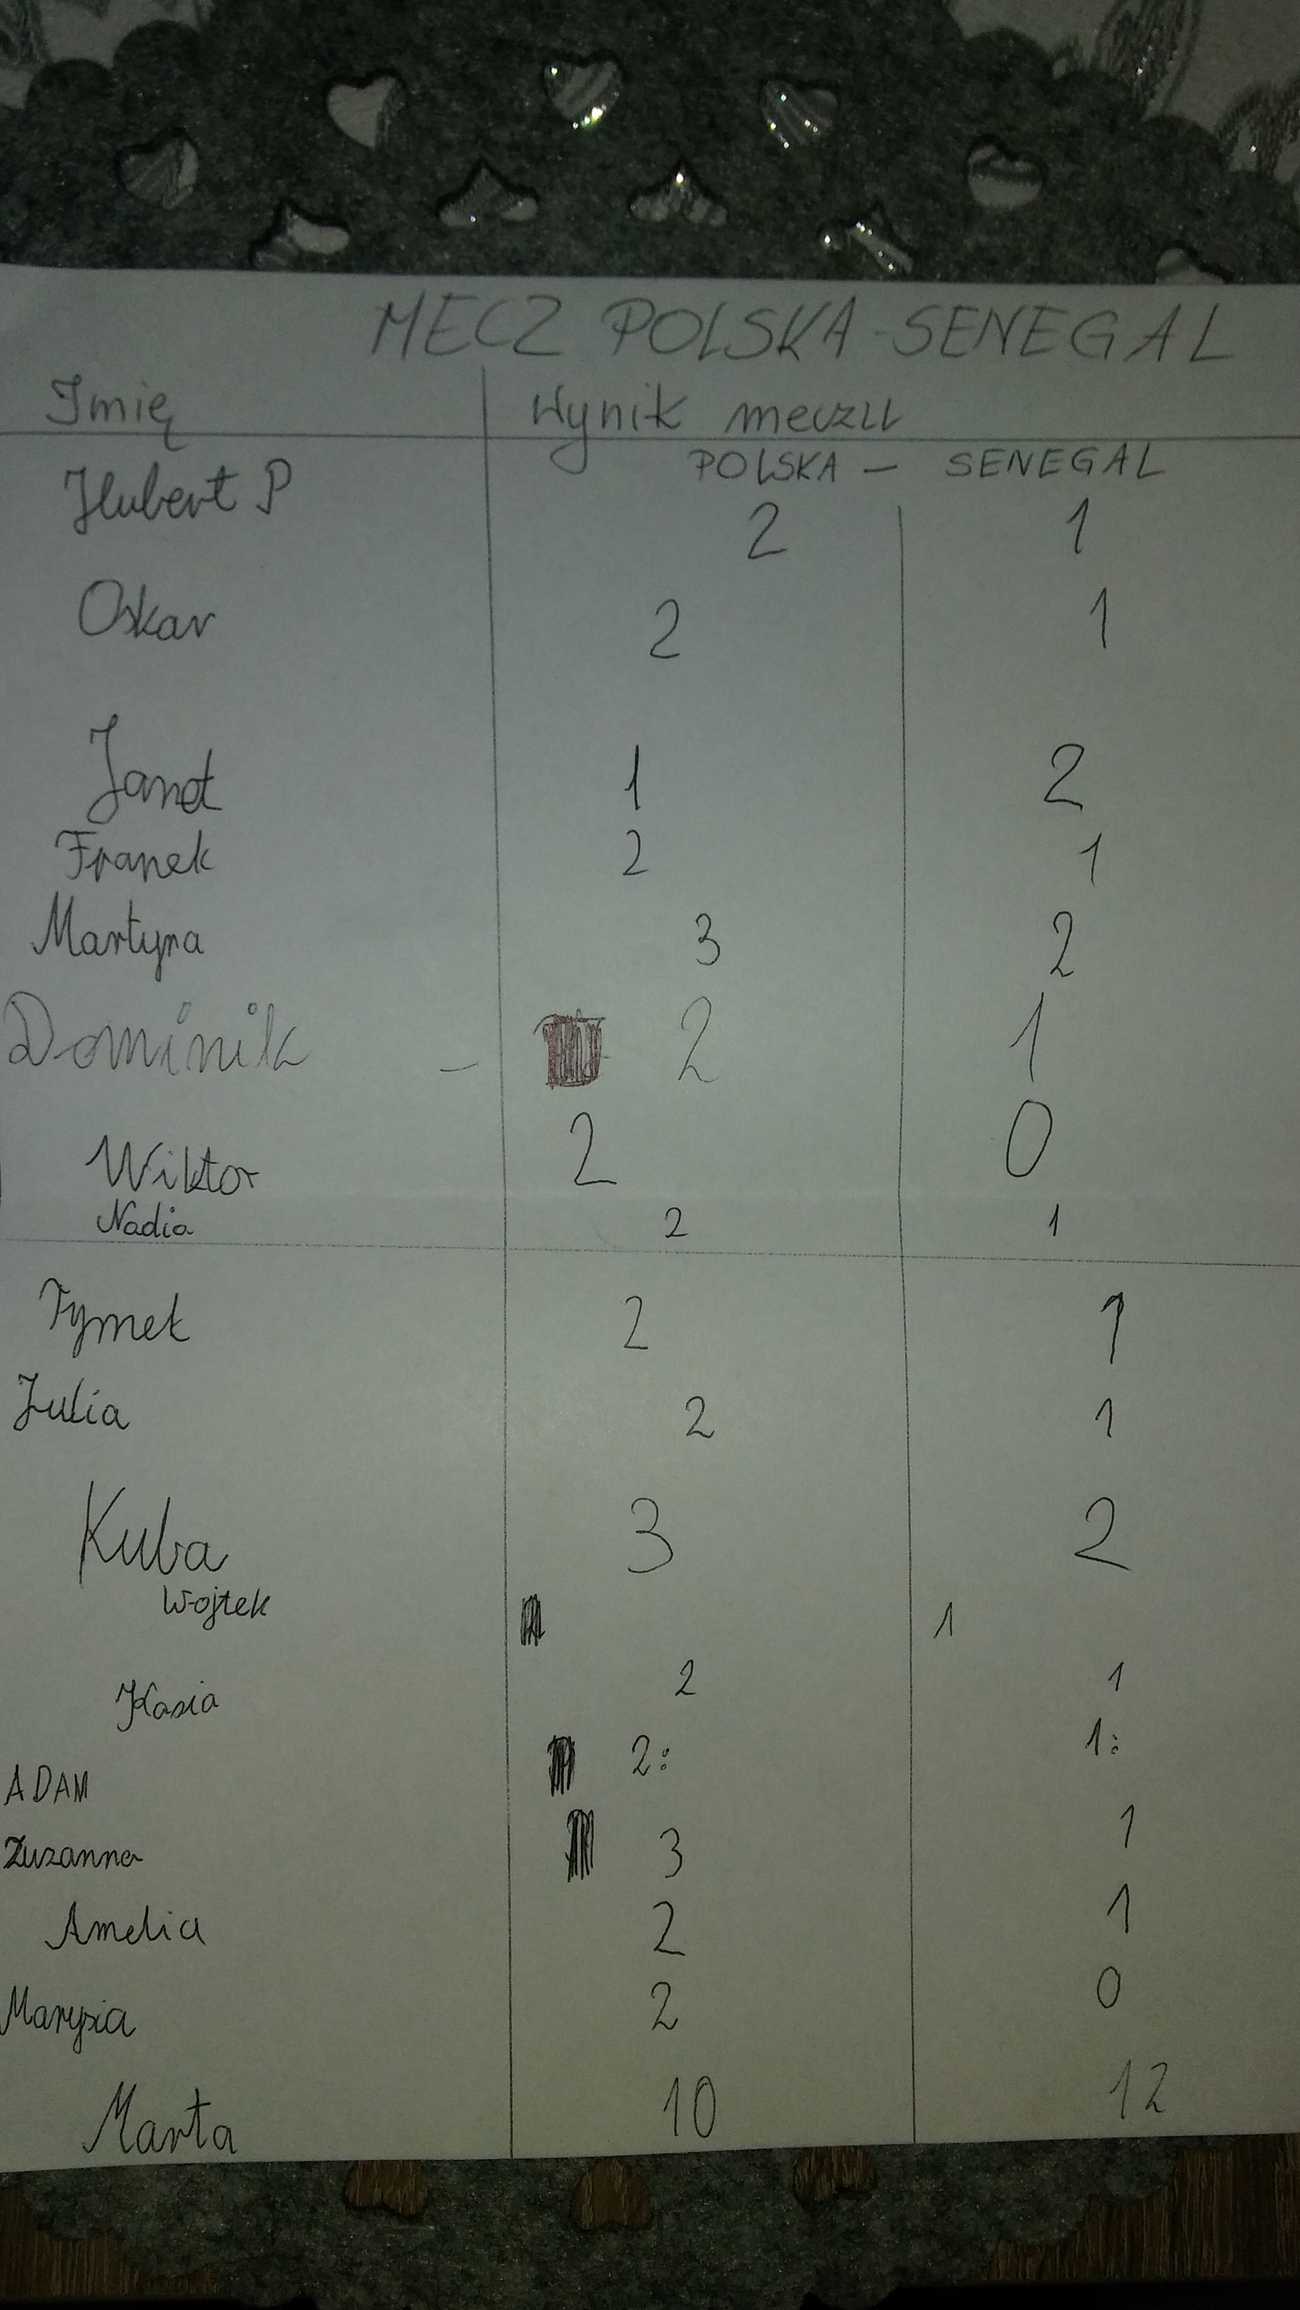 MECZ POLSKA-SENEGAL
Imię Wynik meczu
POLSKA — SENEGAL
Hubert P 2 1
Oskar 2 1
1 2
Franek 2 1
Martyna 3 2
Dominik - 2 1
Wiktor 2 0
Nadia 2 1
Tymek 2 1
Julia 2 1
Kuba 3 2
Wojtek 1
Kasia 2 1
ADAM 2: 1:
Zuzanna 3 1
Amelia 2 1
Marysia 2 0
Marta 10 12